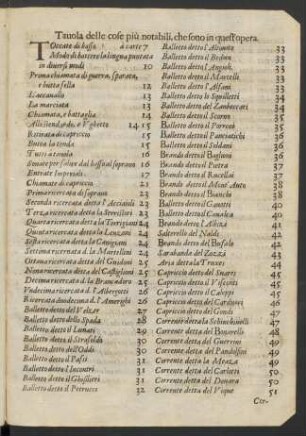 Tauola delle cose più notabili, che sono in quest'opera.
Toccate di basso à carte 7
Modo di battere la lingua puntata
in diuersi modi 10
Prima chiamata di guerra, sparata,
e butta sella 12
L'accauallo 13
La marciata 13
Chiamata, e battaglia 14
Allo stendardo, e Vghetto 14. 15
Ritirata di capriccio 15
Butta la tenda 15
Tutti à tauola 16
Sonate per solar dal basso al soprano 16
Entrate Imperiali 17
Chiamate di capriccio 21
Prima ricercata di soprano 23
Seconda ricercata detta l'Acciaioli 23
Terza ricercata detta la Strozzi 23
Quarta ricercata detta la Torrigiani 23
Quinta ricercata detta la 24
Sesta ricercata detta la Cauigiani 24
Settima ricercata detta la Martellini 24
Ottaua ricercata detta del Guidoni 25
Nona ricercata detta del Castiglioni 25
Decima ricercata detta la Brancadoro 25
Vndecima ricercata detta l'Albergotti 26
Ricercata duodecima detta l'Amerighi 26
Balletto detto del Vulcano 28
Balletto detto dello Spada 28
Balletto detto il Lunati 29
Balletto detto il Strasoldo 30
Balletto detto dell'Oddi 30
Balletto detto il Passi 31
Balletto detto l'Incontri 31
Balletto detto il Ghislieri 31
Balletto detto il Petrucci 32
Balletto detto l'Abbatte 33
Balletto detto il Bichin 33
Balletto detto l' 33
Balletto detto il Martelli 33
Balletto detto l'Alfani 33
Balletto detto lo Squilletti 34
Balletto detto del Zambeccari 34
Balletto detto il Scorni 35
Balletto detto il Pavoni 35
Balletto detto il Buttinoni 35
Balletto detto il Soldani 36
Brando detto il Baglioni 36
Brando detto il Pietra 37
Brando detto il Rucellai 37
Brando detto il Mont'Auto 38
Brando detto il Bianchi 38
Balletto detto il Gauotti 38
Balletto detto il Canalca 41
Brando detto l'Albizi 41
Saltarello del Naldi 41
Brando detto del Bufalo 42
Sarabanda del Zozzi 43
Aria detta la Truxes 43
Capriccio detto del Suares 45
Capriccio detto il Visconti 45
Capriccio detto il Caleppi 45
Capriccio detto del Carducci 46
Capriccio detto del Gondi 46
Corrente detta la Schinchinelli 47
Corrente detta del Bonarelli 48
Corrente detta del Guerrini 49
Corrente detta del Pandolfini 49
Corrente detta la Mezza 49
Corrente detta del Carletti 50
Corrente detta del Donora 51
Corrente detta del Vique 51
Cor-